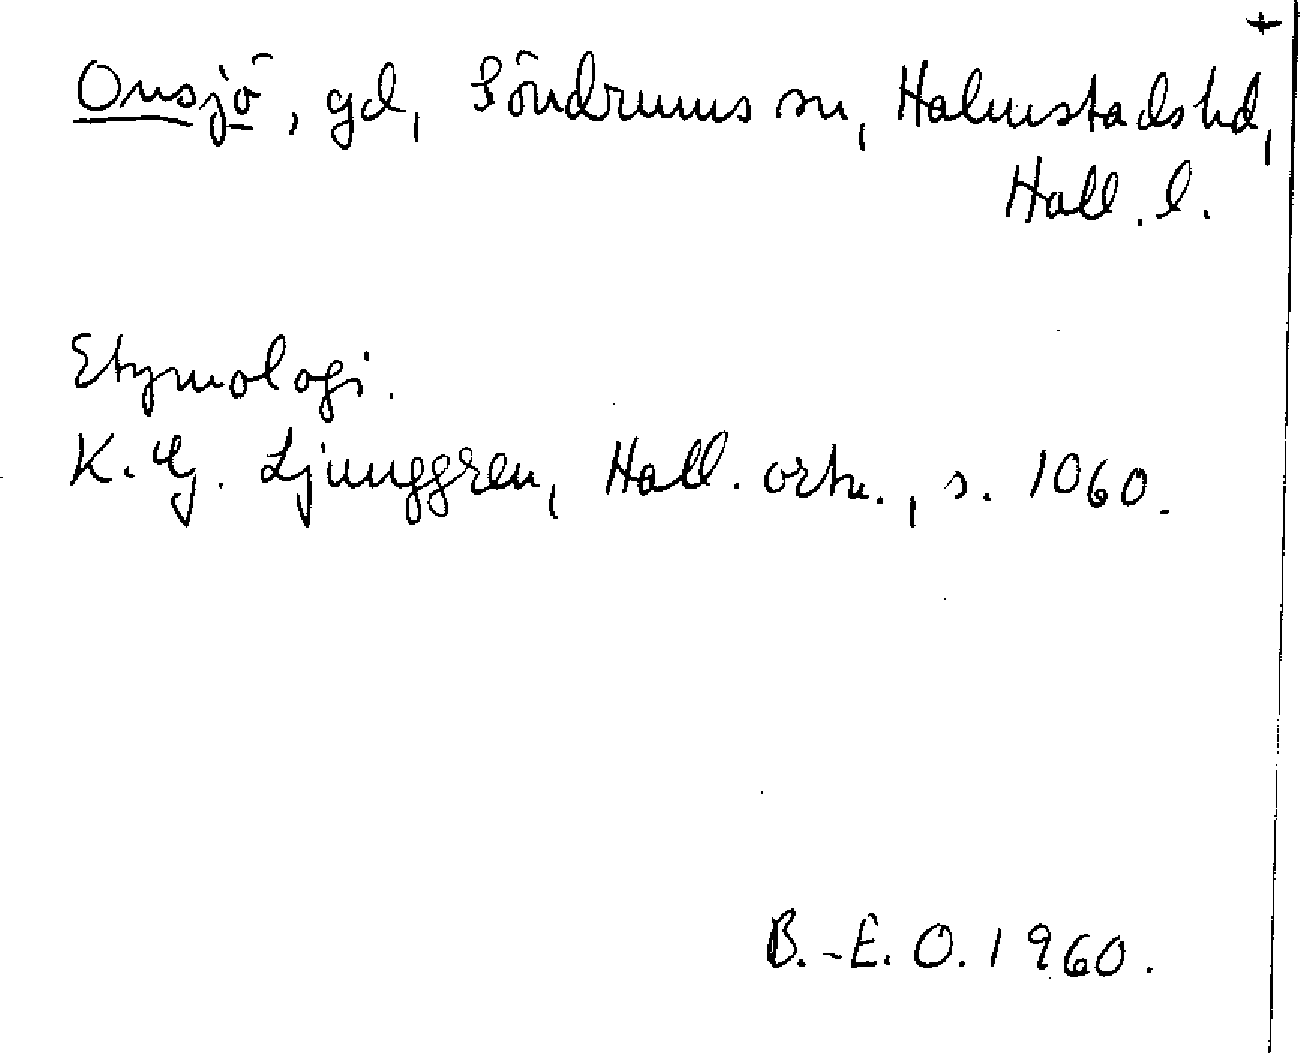 +
Onsjö, gd, Söndrums sn, Halmstads hd,
Hall. l.
Etymologi.
K. G. Ljunggren, Hall. ortn., s. 1060.
B.-E. O. 1960.